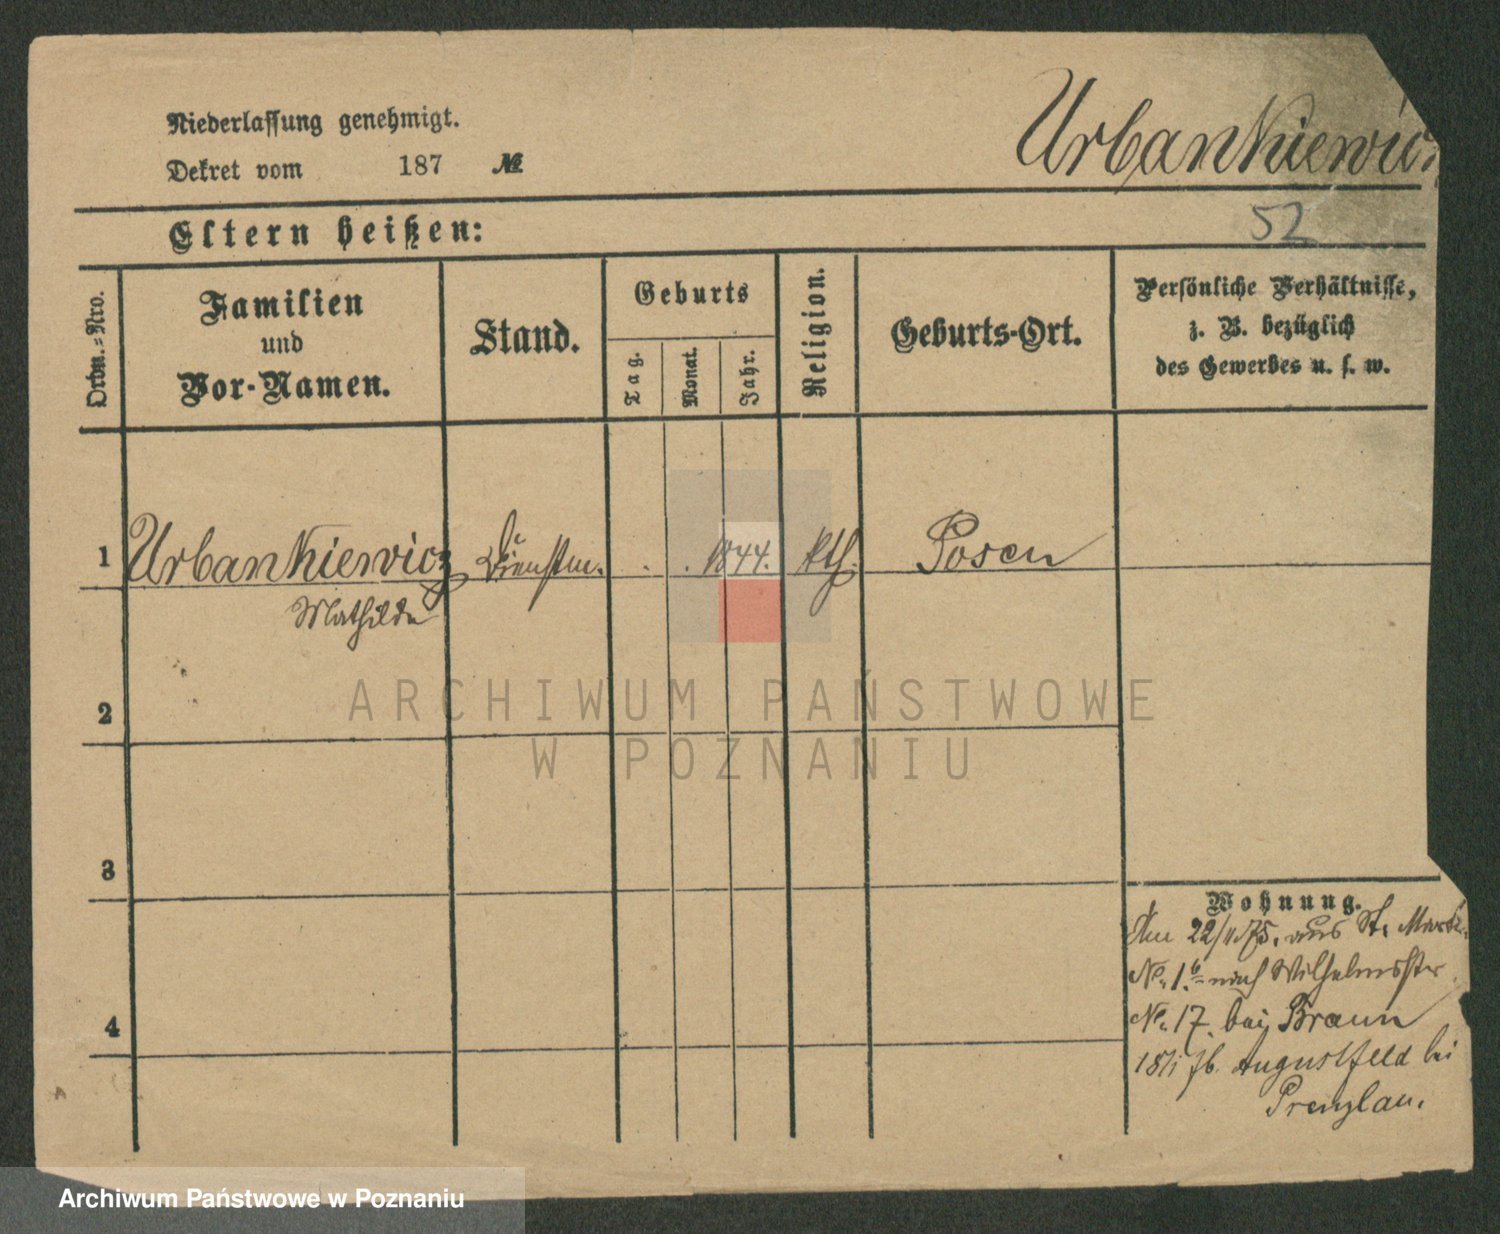 Niederlassung genehmigt.
Dekret vom 187 №
Urbankiewicz
Eltern heißen:
52
Ordn.-Nro.
Familien
und
Vor-Namen.
Stand.
Geburts
Tag.
Monat.
Jahr.
Religion.
Geburts-Ort.
Persönliche Verhältnisse,
z. B. bezüglich
des Gewerbes u. s. w.
1 Urbankiewicz Dienstm. . . 1844. kth. Posen
Mathilde
2
3
4
Wohnung.
Am 22/11 75. aus St. Martin
No. 1.b nach Wilhelmsstr.
No. 17. bei Braun
18/1 76. Augustfeld bei
Prenzlau.
ARCHIWUM PAŃSTWOWE
W POZNANIU
Archiwum Państwowe w Poznaniu